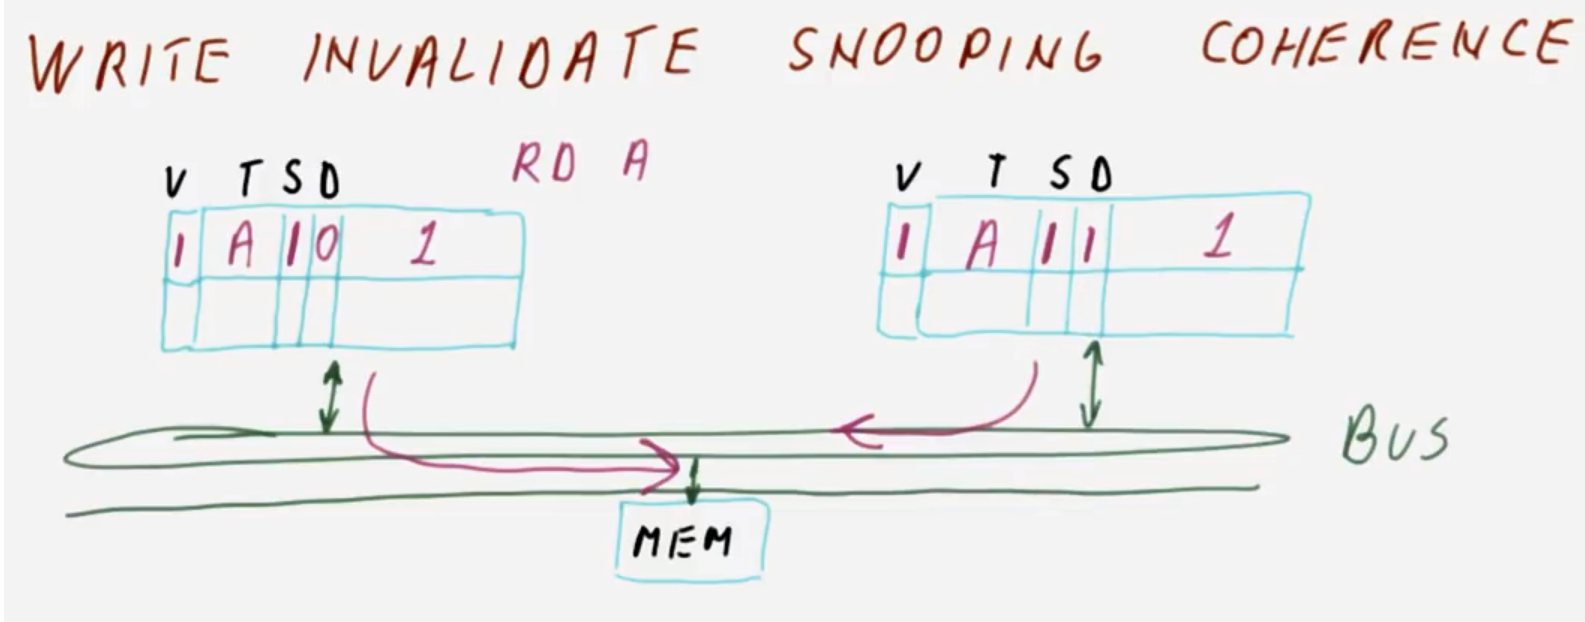 WRITE INVALIDATE SNOOPING COHERENCE
RD A
V T S D
V T S D
1 A 1 0 1
1 A 1 1 1
BUS
MEM